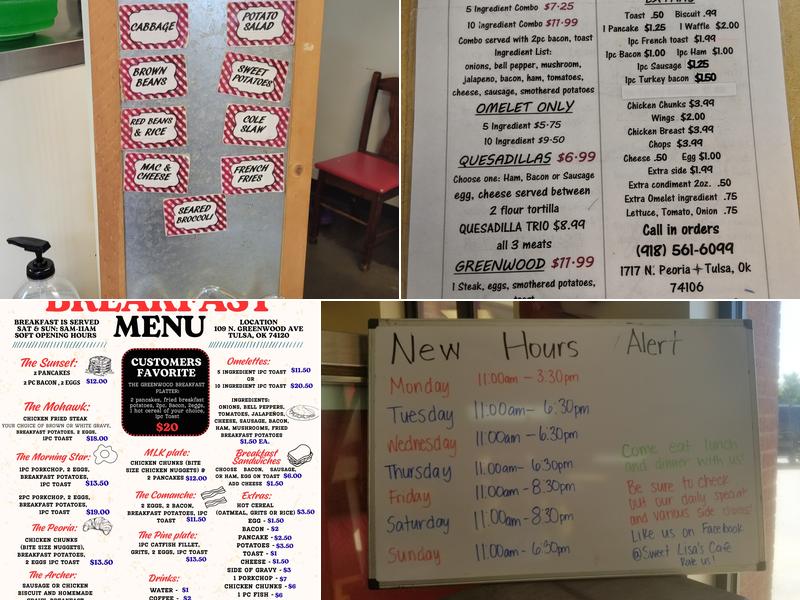 CABBAGE
POTATO
SALAD
BROWN
BEANS
SWEET
POTATOES
RED BEANS
& RICE
COLE
SLAW
MAC &
CHEESE
FRENCH
FRIES
SEARED
BROCCOLI
5 Ingredient Combo $7.25
10 Ingredient Combo $11.99
Combo served with 2pc bacon, toast
Ingredient List:
onions, bell pepper, mushroom,
jalapeno, bacon, ham, tomatoes,
cheese, sausage, smothered potatoes
OMELET ONLY
5 Ingredient $5.75
10 Ingredient $9.50
QUESADILLAS $6.99
Choose one: Ham, Bacon or Sausage
egg, cheese served between
2 flour tortilla
QUESADILLA TRIO $8.99
all 3 meats
GREENWOOD $11.99
1 Steak, eggs, smothered potatoes,
toast
EXTRAS
Toast .50 Biscuit .99
1 Pancake $1.25 1 Waffle $2.00
1pc French toast $1.99
1pc Bacon $1.00 1pc Ham $1.00
1pc Sausage $1.25
1pc Turkey bacon $1.50
Chicken Chunks $3.99
Wings $2.00
Chicken Breast $3.99
Chops $3.99
Cheese .50 Egg $1.00
Extra side $1.99
Extra condiment 2oz. .50
Extra Omelet ingredient .75
Lettuce, Tomato, Onion .75
Call in orders
(918) 561-6099
1717 N. Peoria + Tulsa, Ok
74106
BREAKFAST
MENU
BREAKFAST IS SERVED
SAT & SUN: 8AM-11AM
SOFT OPENING HOURS
LOCATION
109 N. GREENWOOD AVE
TULSA, OK 74120
The Sunset:
2 PANCAKES
2 PC BACON, 2 EGGS $12.00
The Mohawk:
CHICKEN FRIED STEAK
YOUR CHOICE OF BROWN OR WHITE GRAVY,
BREAKFAST POTATOES, 2 EGGS,
1PC TOAST $18.00
The Morning Star:
1PC PORKCHOP, 2 EGGS,
BREAKFAST POTATOES,
1PC TOAST $13.50
2PC PORKCHOP, 2 EGGS,
BREAKFAST POTATOES,
1PC TOAST $19.00
The Peoria:
CHICKEN CHUNKS
(BITE SIZE NUGGETS),
BREAKFAST POTATOES,
2 EGGS 1PC TOAST $13.50
The Archer:
SAUSAGE OR CHICKEN
BISCUIT AND HOMEMADE
CUSTOMERS
FAVORITE
THE GREENWOOD BREAKFAST
PLATTER:
2 pancakes, fried breakfast
potatoes, 2pc. Bacon, 2eggs,
1 hot cereal of your choice,
1pc Toast
$20
MLK plate:
CHICKEN CHUNKS (BITE
SIZE CHICKEN NUGGETS) &
2 PANCAKES $12.00
The Comanche:
2 EGGS, 2 BACON,
BREAKFAST POTATOES, 1PC
TOAST $11.50
The Pine plate:
1PC CATFISH FILLET,
GRITS, 2 EGGS, 1PC TOAST
$13.50
Drinks:
WATER - $1
COFFEE - $2
Omelettes:
5 INGREDIENT 1PC TOAST $11.50
OR
10 INGREDIENT 1PC TOAST $20.50
INGREDIENTS:
ONIONS, BELL PEPPERS,
TOMATOES, JALAPEÑOS,
CHEESE, SAUSAGE, BACON,
HAM, MUSHROOMS, FRIED
BREAKFAST POTATOES
$1.50 EA.
Breakfast
Sandwiches
CHOOSE BACON, SAUSAGE,
OR HAM, EGG ON TOAST $6.00
ADD CHEESE $1.50
Extras:
HOT CEREAL
(OATMEAL, GRITS OR RICE) $3.50
EGG - $1.50
BACON - $2
PANCAKE - $2.50
POTATOES - $3.50
TOAST - $1
CHEESE - $1.50
SIDE OF GRAVY - $3
1 PORKCHOP - $7
CHICKEN CHUNKS - $6
1 PC FISH - $6
New Hours Alert
Monday 11:00am - 3:30pm
Tuesday 11:00am - 6:30pm
Wednesday 11:00am - 6:30pm
Thursday 11:00am - 6:30pm
Friday 11:00am - 8:30pm
Saturday 11:00am - 8:30pm
Sunday 11:00am - 6:30pm
Come eat lunch
and dinner with us!
Be sure to check
out our daily special
and various side choices!
Like us on Facebook
@Sweet Lisa's Café
Rate us!